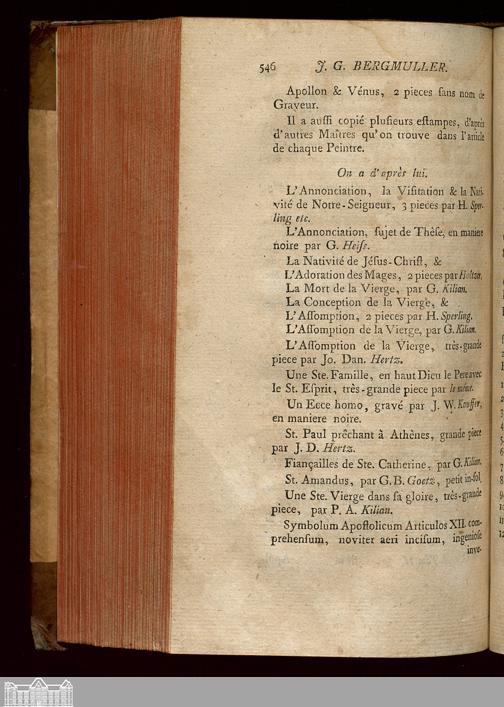 546 J. G. BERGMULLER.
Apollon & Vénus, 2 pieces ſans nom de
Graveur.
Il a auſſi copié pluſieurs eſtampes, d'après
d'autres Maîtres qu'on trouve dans l'article
de chaque Peintre.
On a d'après lui.
L'Annonciation, la Viſitation & la Nati-
vité de Notre-Seigneur, 3 pieces par H. Sper-
ling etc.
L'Annonciation, ſujet de Thèſe, en maniere
noire par G. Heiſs.
La Nativité de Jéſus-Chriſt, &
L'Adoration des Mages, 2 pieces par Holtzer.
La Mort de la Vierge, par G. Kilian.
La Conception de la Vierge, &
L'Aſſomption, 2 pieces par H. Sperling.
L'Aſſomption de la Vierge, par G. Kilian.
L'Aſſomption de la Vierge, très-grande
piece par Jo. Dan. Hertz.
Une Ste. Famille, en haut Dieu le Pere avec
le St. Eſprit, très-grande piece par le même.
Un Ecce homo, gravé par J. W.
en maniere noire.
St. Paul prêchant à Athènes, grande piece
par J. D. Hertz.
Fiançailles de Ste. Catherine, par G. Kilian.
St. Amandus, par G. B. Goetz, petit in-fol.
Une Ste. Vierge dans ſa gloire, très-grande
piece, par P. A. Kilian.
Symbolum Apoſtolicum Articulos XII. com-
prehenſum, noviter aeri inciſum, ingenioſe
inve-